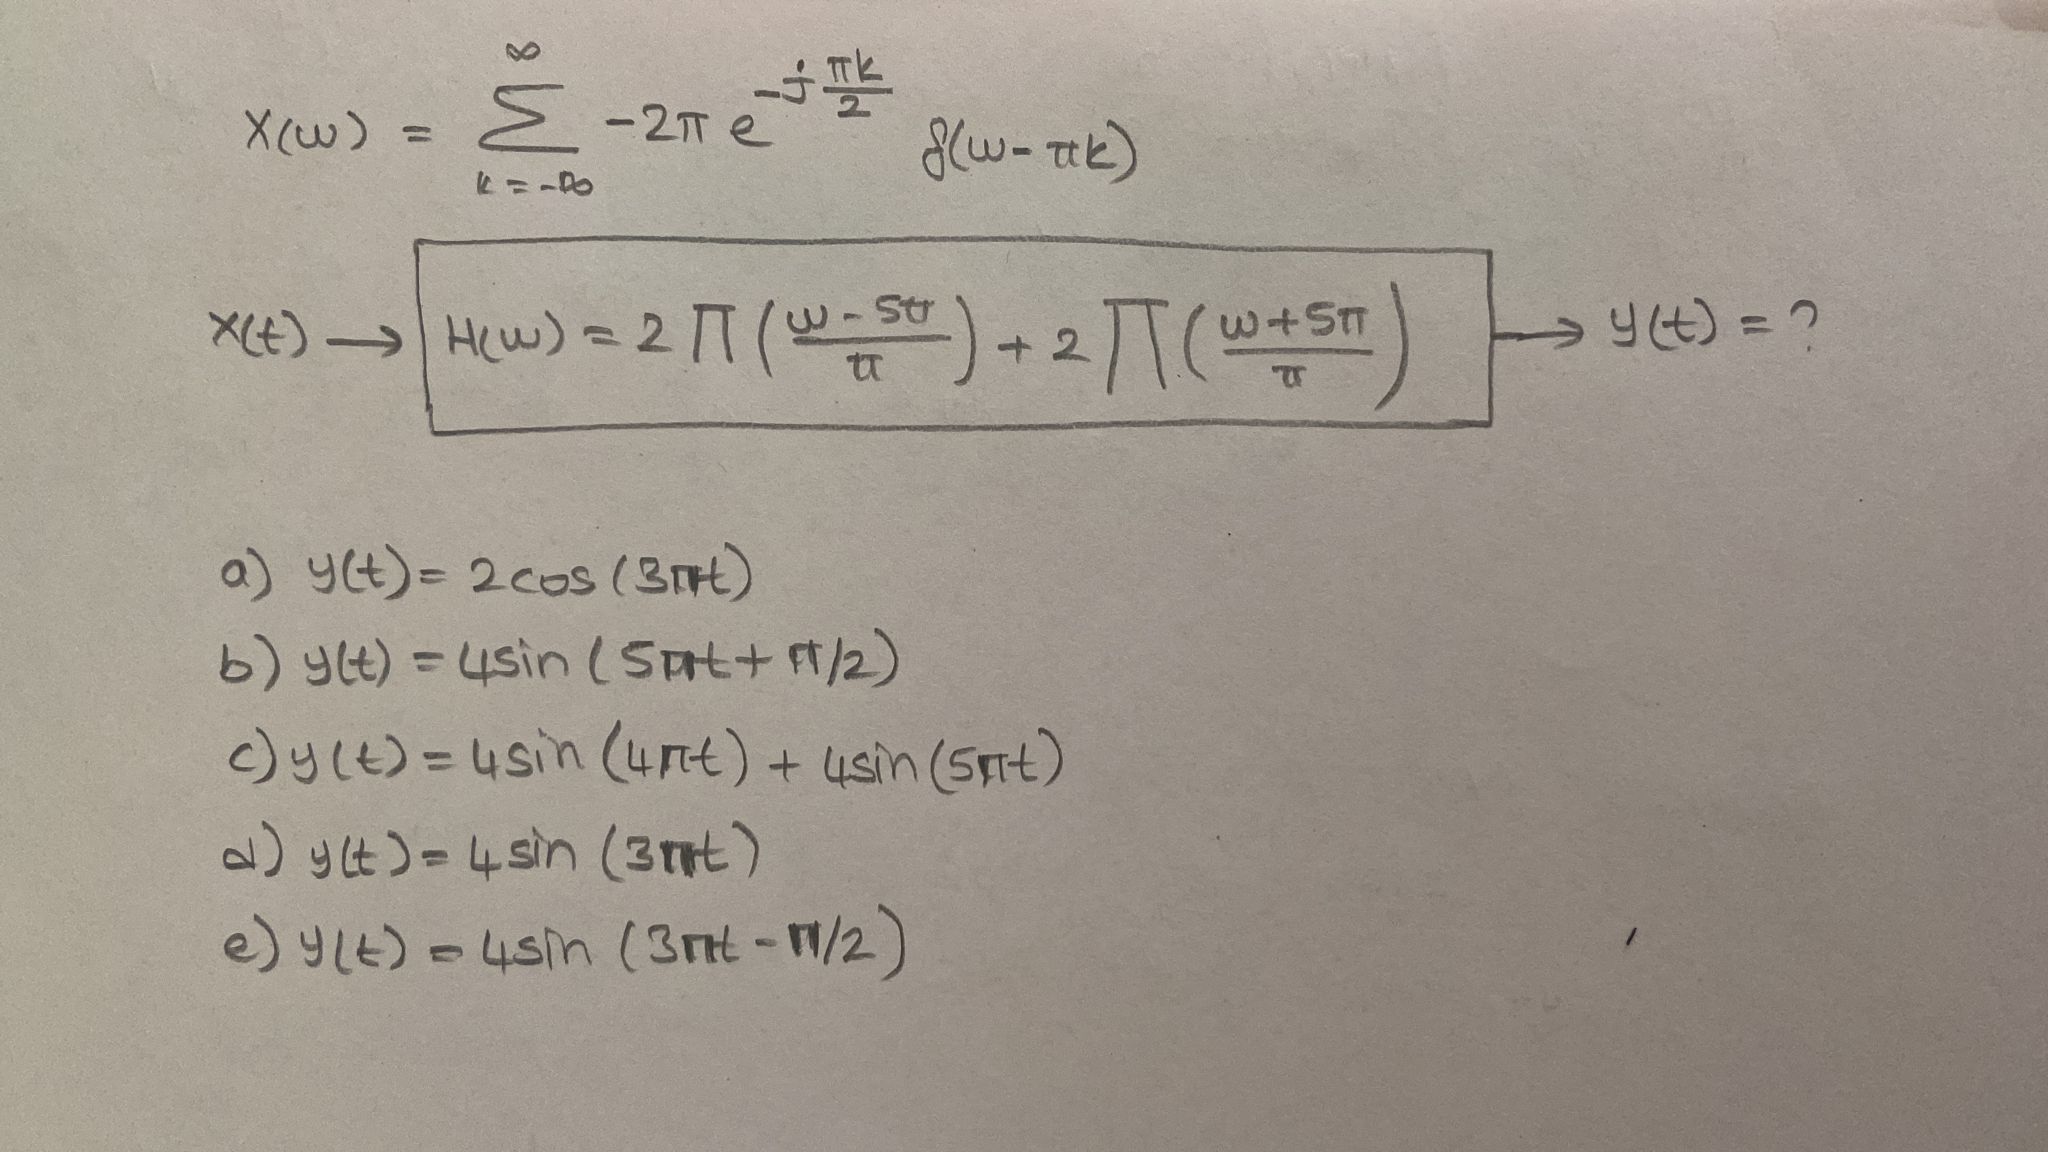 X(ω) = ∑_{k=-∞}^{∞} -2π e^{-j πk/2} δ(ω-πk)
x(t) → H(ω) = 2 Π((ω-5π)/π) + 2 Π((ω+5π)/π) → y(t) = ?
a) y(t) = 2cos(3πt)
b) y(t) = 4sin(5πt + π/2)
c) y(t) = 4sin(4πt) + 4sin(5πt)
d) y(t) = 4sin(3πt)
e) y(t) = 4sin(3πt - π/2)